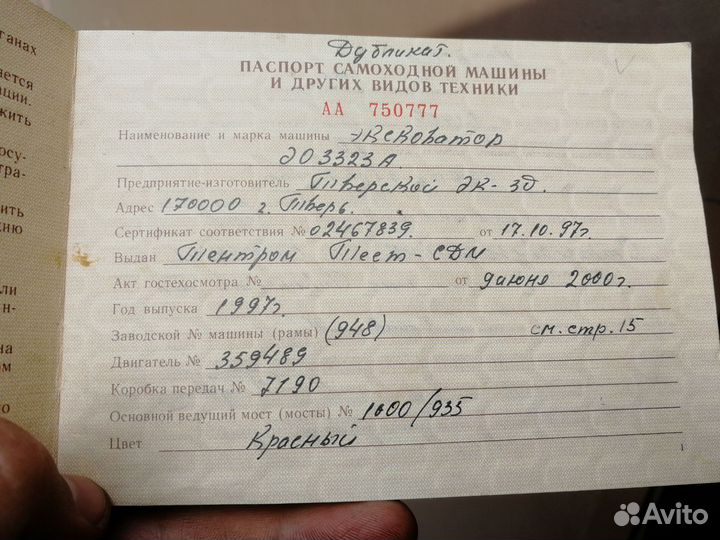 ганах
ается
ации.
жить
осу-
тра-
ить
нию
ли
н-
на
ом
о
Дубликат.
ПАСПОРТ САМОХОДНОЙ МАШИНЫ
И ДРУГИХ ВИДОВ ТЕХНИКИ
АА 750777
Наименование и марка машины Экскаватор
ЭО 3323А
Предприятие-изготовитель Тверской эк-з
Адрес 170000 г. Тверь.
Сертификат соответствия № 02467839. от 17.10.97г.
Выдан Центром Тест-СДМ
Акт гостехосмотра № от 9 июня 2000г.
Год выпуска 1997г.
Заводской № машины (рамы) (948) см. стр. 15
Двигатель № 359489
Коробка передач № 7190
Основной ведущий мост (мосты) № 1600/935
Цвет Красный
1
Avito